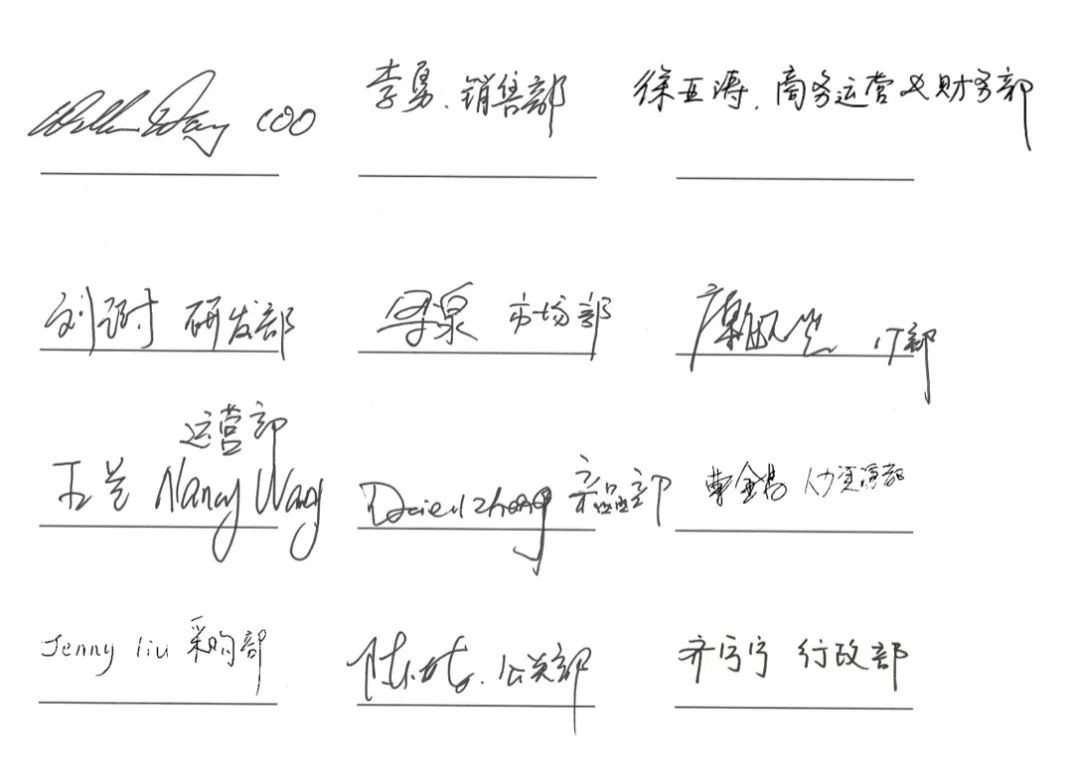 William Wang COO
李勇.销售部
徐亚涛.商务运营及财务部
研发部
市场部
IT部
运营部
Nancy Wang
Zhang 产品部
曹金易 人力资源部
Jenny liu 采购部
公关部
齐宁宁 行政部